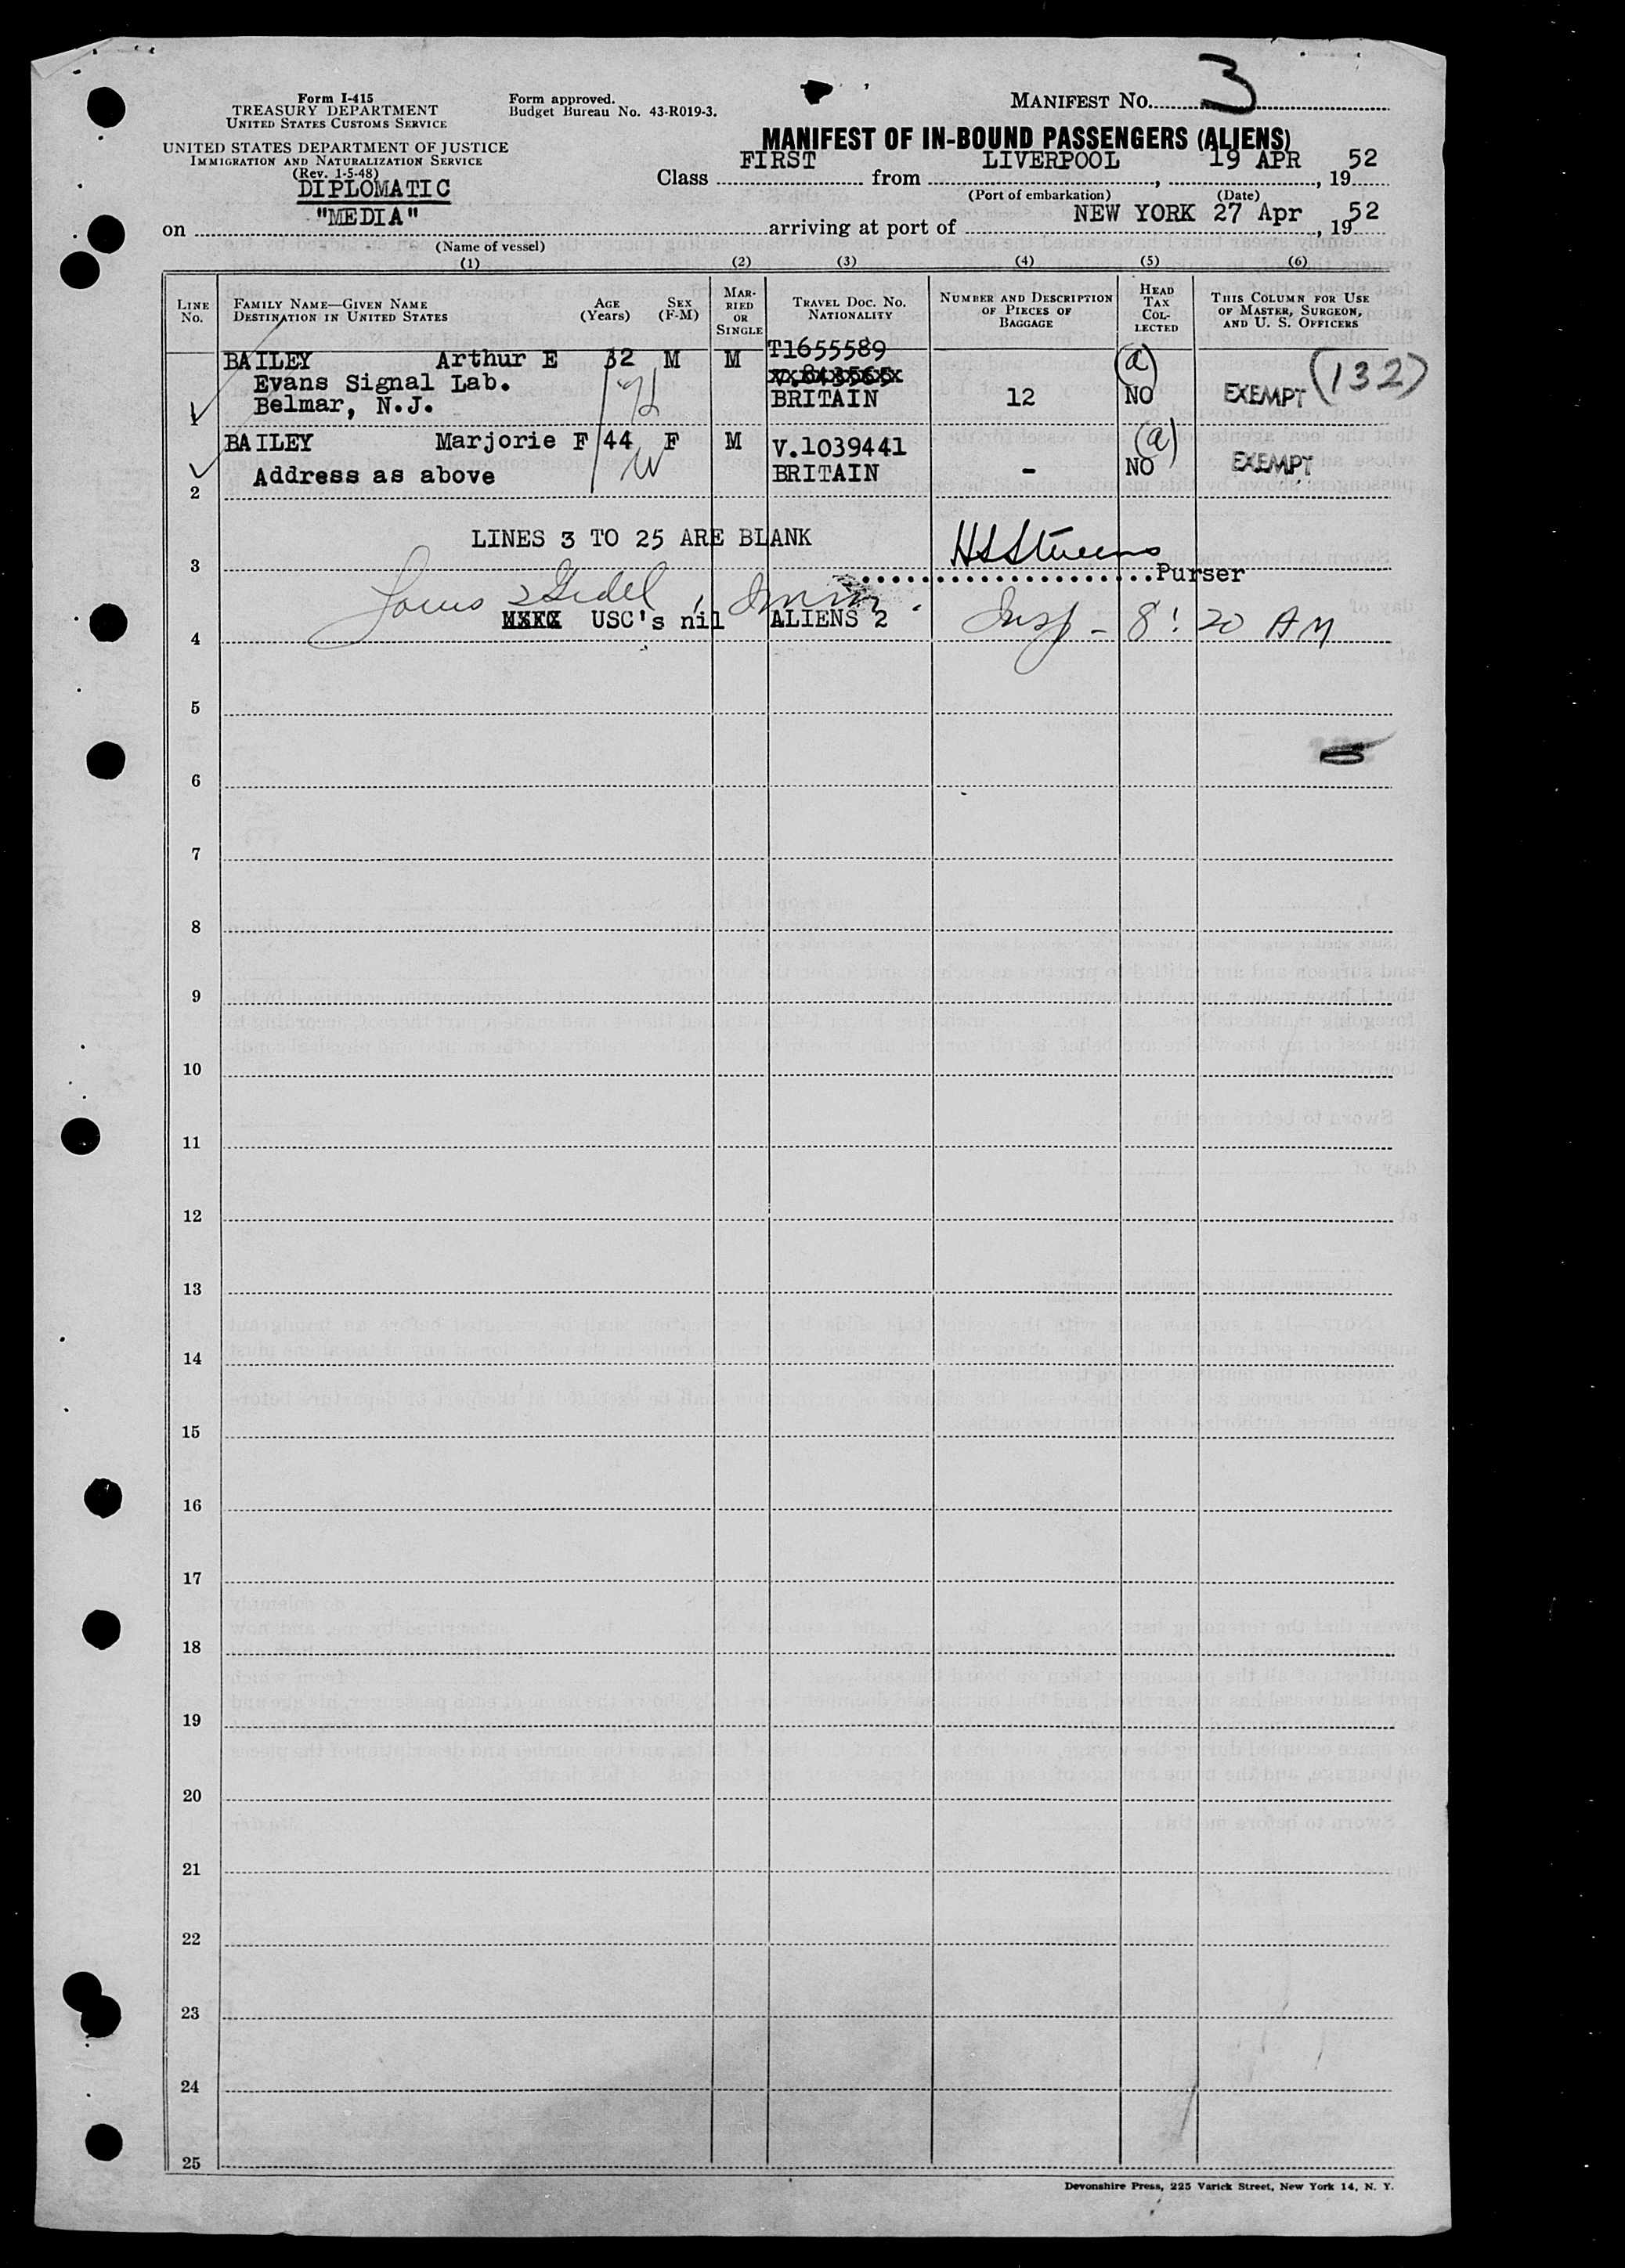 Form I-415
TREASURY DEPARTMENT
UNITED STATES CUSTOMS SERVICE
UNITED STATES DEPARTMENT OF JUSTICE
IMMIGRATION AND NATURALIZATION SERVICE
(Rev. 1-5-48)
DIPLOMATIC
Form approved.
Budget Bureau No. 43-R019-3.
MANIFEST NO. 3
MANIFEST OF IN-BOUND PASSENGERS (ALIENS)
Class FIRST from LIVERPOOL, 19 APR, 1952
(Port of embarkation) (Date)
on "MEDIA" arriving at port of NEW YORK 27 Apr, 1952
(Name of vessel)
(1) (2) (3) (4) (5) (6)
LINE NO.
FAMILY NAME—GIVEN NAME
DESTINATION IN UNITED STATES
AGE (Years)
SEX (F-M)
MARRIED OR SINGLE
TRAVEL DOC. NO.
NATIONALITY
NUMBER AND DESCRIPTION OF PIECES OF BAGGAGE
HEAD TAX COLLECTED
THIS COLUMN FOR USE OF MASTER, SURGEON, AND U. S. OFFICERS
BAILEY Arthur E 32 M M T1655589 (a) (132)
Evans Signal Lab.
1 Belmar, N.J. BRITAIN 12 NO EXEMPT
BAILEY Marjorie F 44 F M V.1039441 (a)
Address as above BRITAIN - NO EXEMPT
2
LINES 3 TO 25 ARE BLANK
H S Stevens
3 Purser
Insp - 8:20 AM
USC's nil ALIENS 2
4
5
6
7
8
9
10
11
12
13
14
15
16
17
18
19
20
21
22
23
24
25
Devonshire Press, 225 Varick Street, New York 14, N. Y.